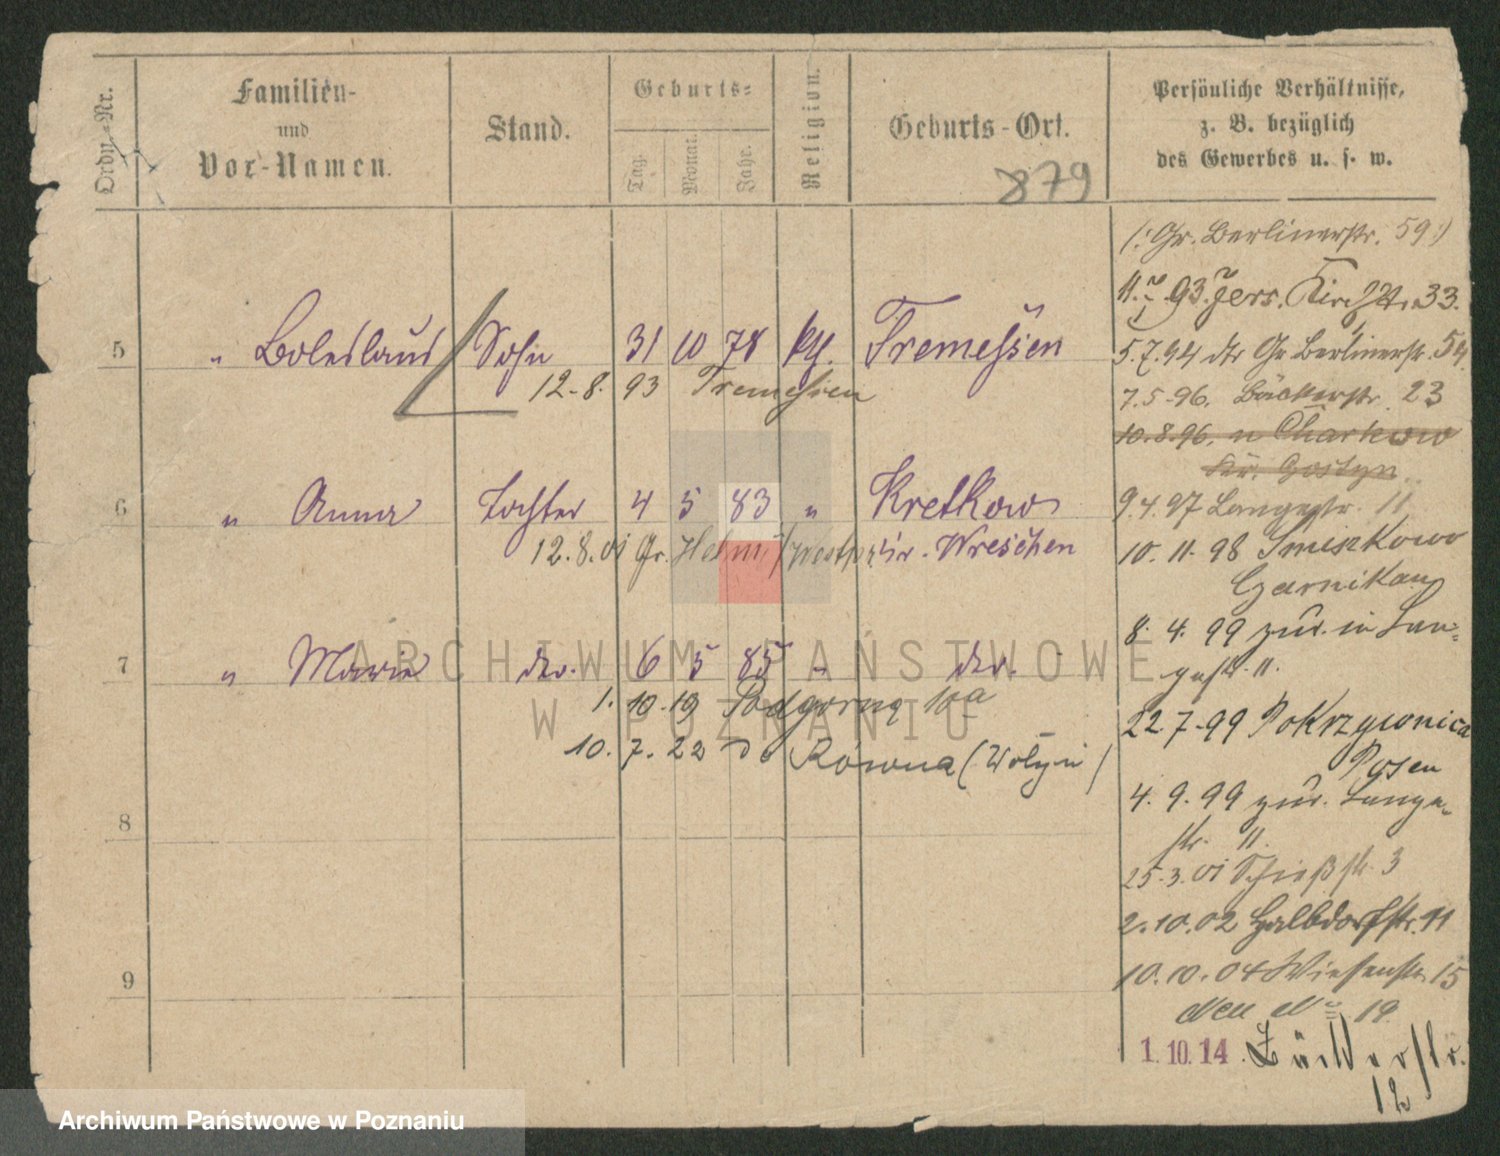 Ordn.-Nr.
Familien-
und
Vor-Namen.
Stand.
Geburts-
Tag.
Monat.
Jahr.
Religion.
Geburts-Ort.
879
Persönliche Verhältnisse,
z. B. bezüglich
des Gewerbes u. s. w.
5 " Boleslaus Sohn 31 10 78 kth. Tremessen
12.8.93 Tremessen
6 " Anna Tochter 4 5 83 " Kretkow
12.8.01 Gr. Kr. Wreschen
7 " Marie do. 6 5 85 " do.
1.10.19 Podgorna 10a
10.7.22 do Równa (Wołyń)
8
9
(: Gr. Berlinerstr. 59 :)
93. Jers. Kirchstr. 33.
5.7.94 Gr. Berlinerstr. 54.
7.5.96. Bäckerstr. 23
10.8.96. n Charkowo
Kr. Gostyn
9.4.97 Langestr. 11
10.11.98 Smieszkowo
Czarnikau
8.4.99 zur. in Lan-
gestr. 11.
22.7.99 Pokrzywnica
Posen
4.9.99 zur. Lange-
str. 11.
25.3.01 Schießstr. 3
2.10.02 Halbdorfstr. 11
10.10.04 Wiesenstr. 15
neu No 19
1.10.14. Bäckerstr.
12
ARCHIWUM PAŃSTWOWE
W POZNANIU
Archiwum Państwowe w Poznaniu